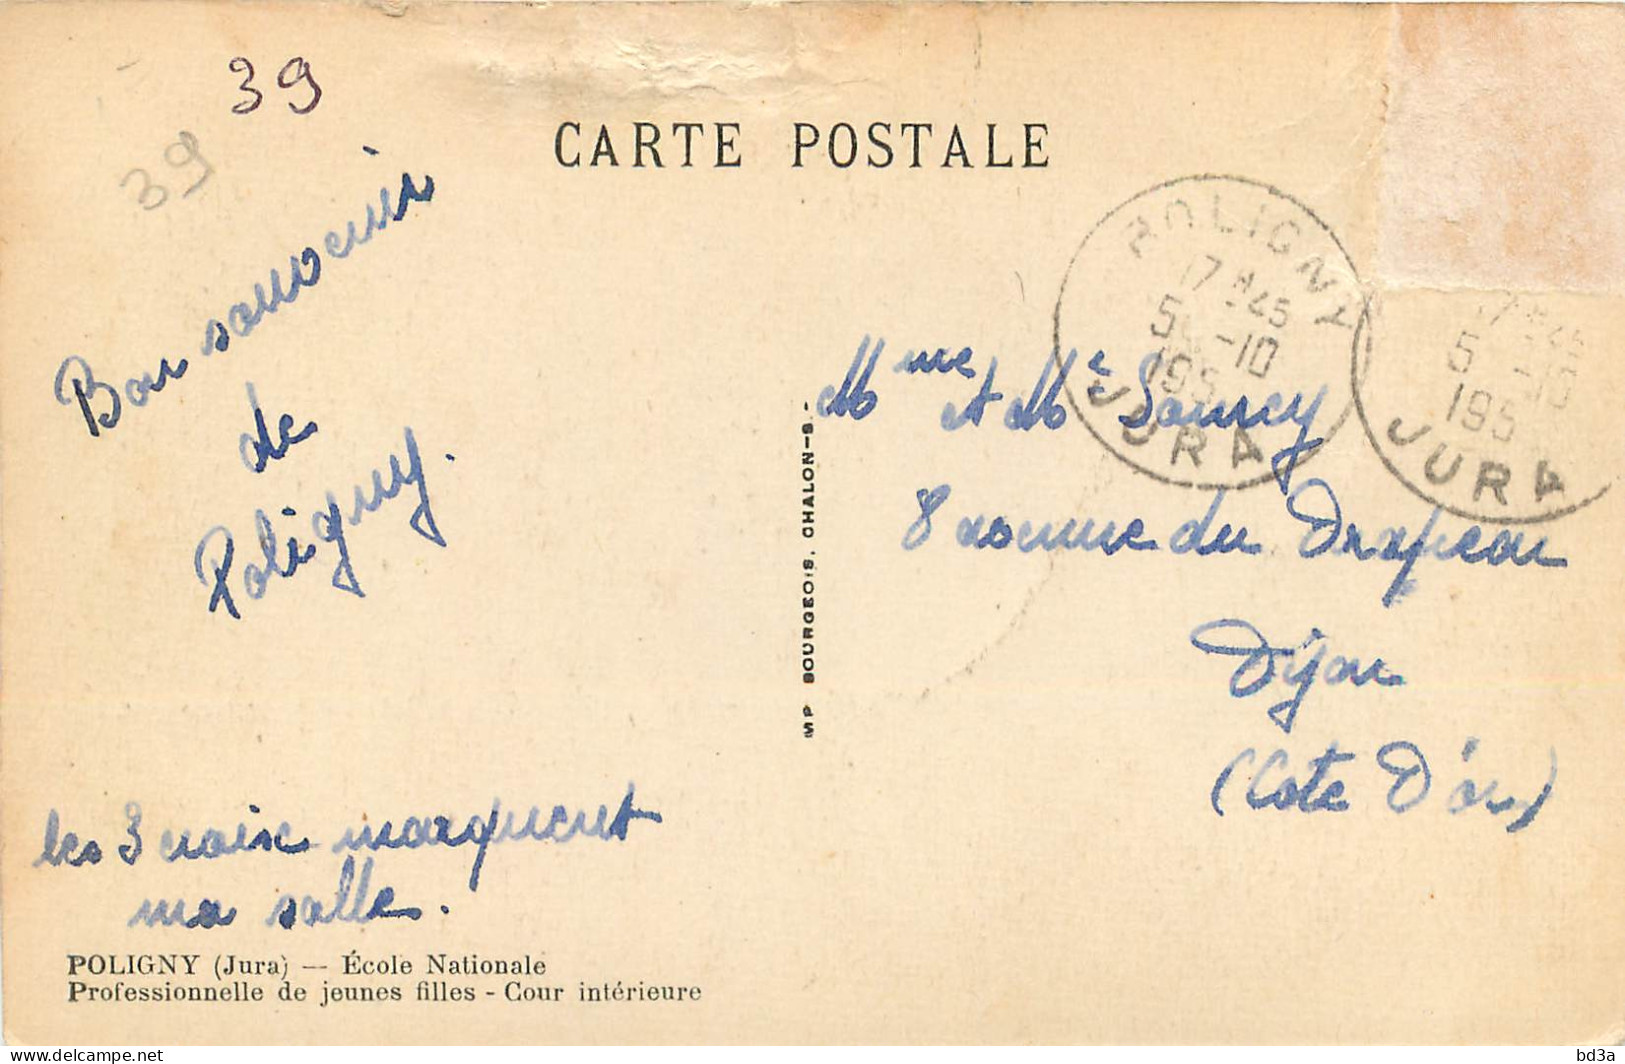 39
39
CARTE POSTALE
Bon souvenir
de
Poligny.
les 3 croix marquent
ma salle.
POLIGNY (Jura) — École Nationale
Professionnelle de jeunes filles - Cour intérieure
MP BOURGEOIS, CHALON-S-
POLIGNY
17 H 45
5 -10
195
JURA
17 H 45
5 -10
195
JURA
Mme et Mr
8 avenue du Drapeau
Dijon
(Cote D'or)
delcampe.net
bd3a